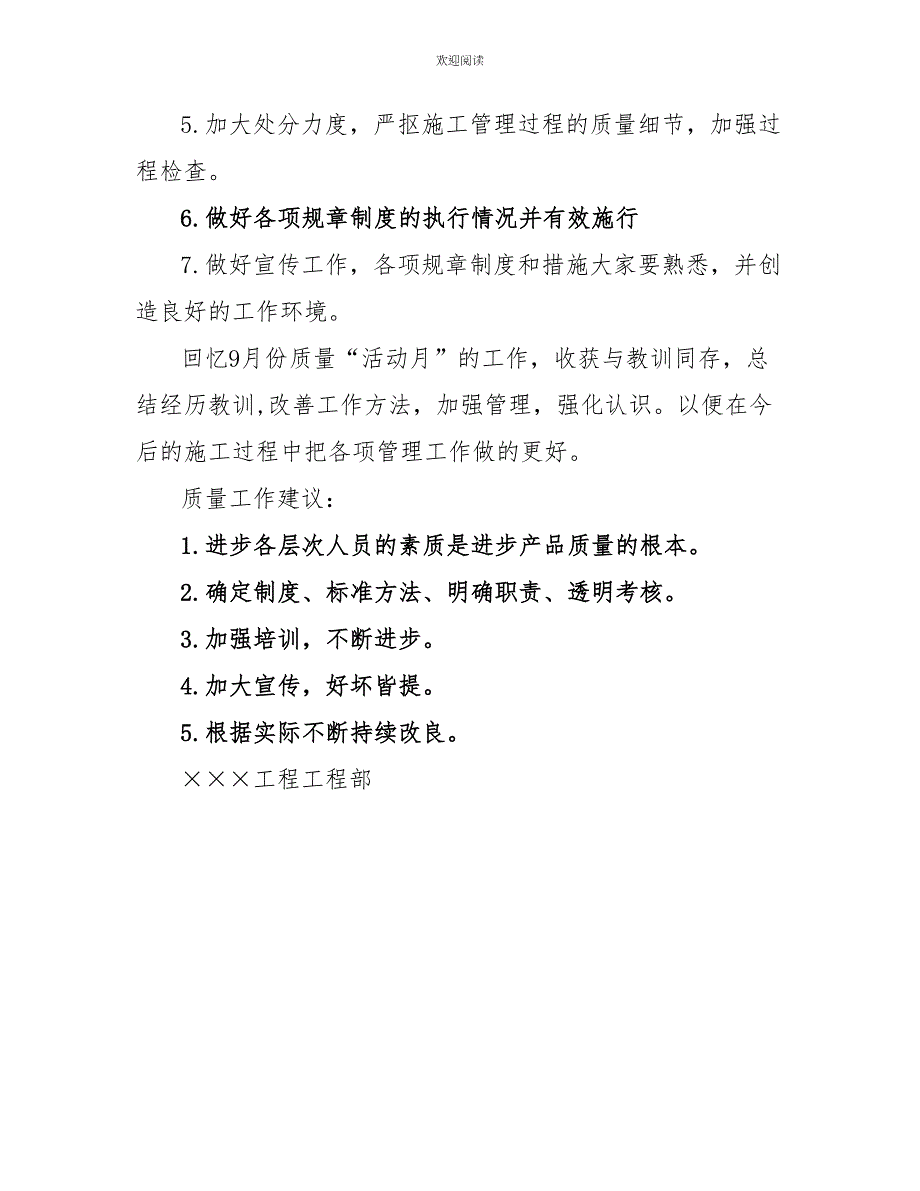 欢迎阅读
5.加大处分力度，严抠施工管理过程的质量细节，加强过
程检查。
6.做好各项规章制度的执行情况并有效施行
7.做好宣传工作，各项规章制度和措施大家要熟悉，并创
造良好的工作环境。
回忆9月份质量“活动月”的工作，收获与教训同存，总
结经历教训,改善工作方法，加强管理，强化认识。以便在今
后的施工过程中把各项管理工作做的更好。
质量工作建议：
1.进步各层次人员的素质是进步产品质量的根本。
2.确定制度、标准方法、明确职责、透明考核。
3.加强培训，不断进步。
4.加大宣传，好坏皆提。
5.根据实际不断持续改良。
×××工程工程部